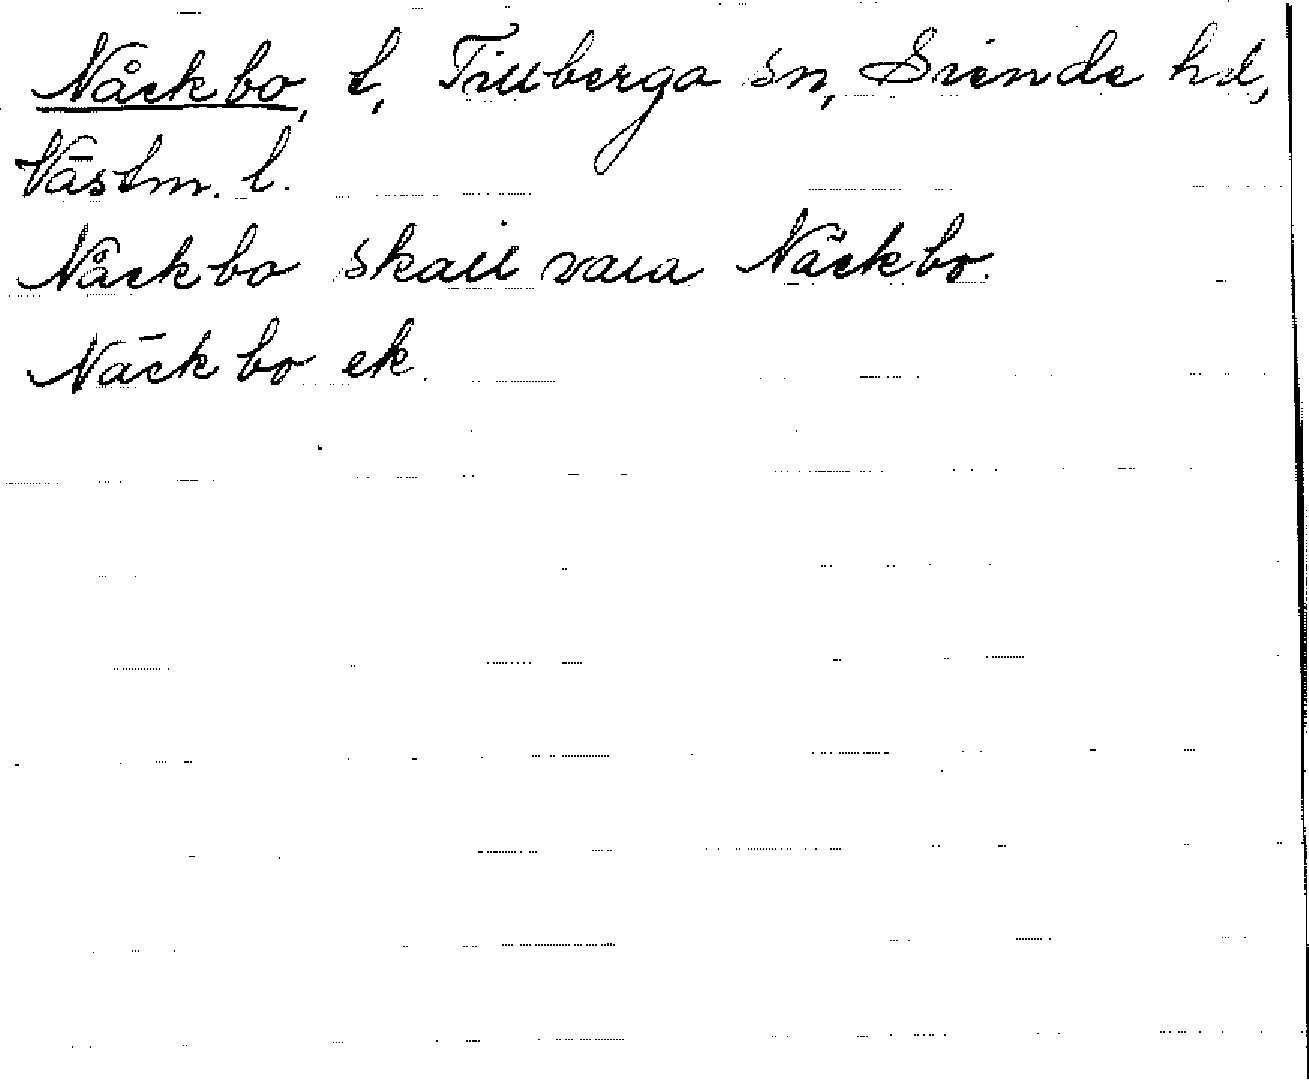 Nåckbo, t, Tillberga sn, Siende hd,
Västm. l.
Nåckbo skall vara Näckbo.
Näckbo ek.